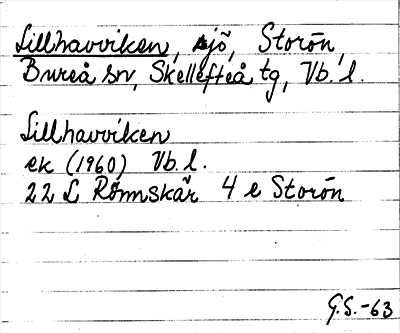 Lillhavviken, sjö, Storön,
Bureå sn, Skellefteå tg, Vb. l.
Lillhavviken
ek (1960) Vb. l.
22 L Rönnskär 4 e Storön
G.S.-63